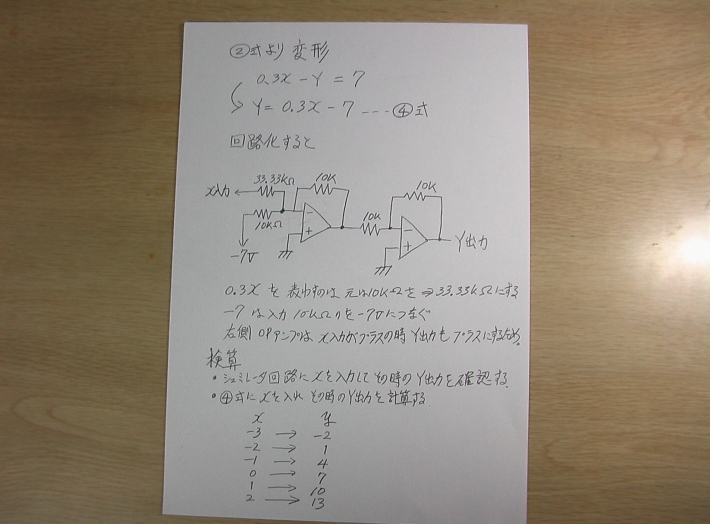 ②式より変形
0.3x - Y = 7
Y = 0.3x - 7 --- ④式
回路化すると
33.33kΩ
10K
10K
x入力
10K
10kΩ
Y出力
-7V
0.3X を 表わすのは 元は10kΩを ⇒ 33.33kΩにする
-7 は入力 10kΩを -7Vにつなぐ
右側 OPアンプは x入力がプラスの時 Y出力もプラスにするため
検算
・シュミレータ回路に xを入力して その時の Y出力を確認する
・④式に xを入れ その時のY出力を計算する
x y
-3 → -2
-2 → 1
-1 → 4
0 → 7
1 → 10
2 → 13